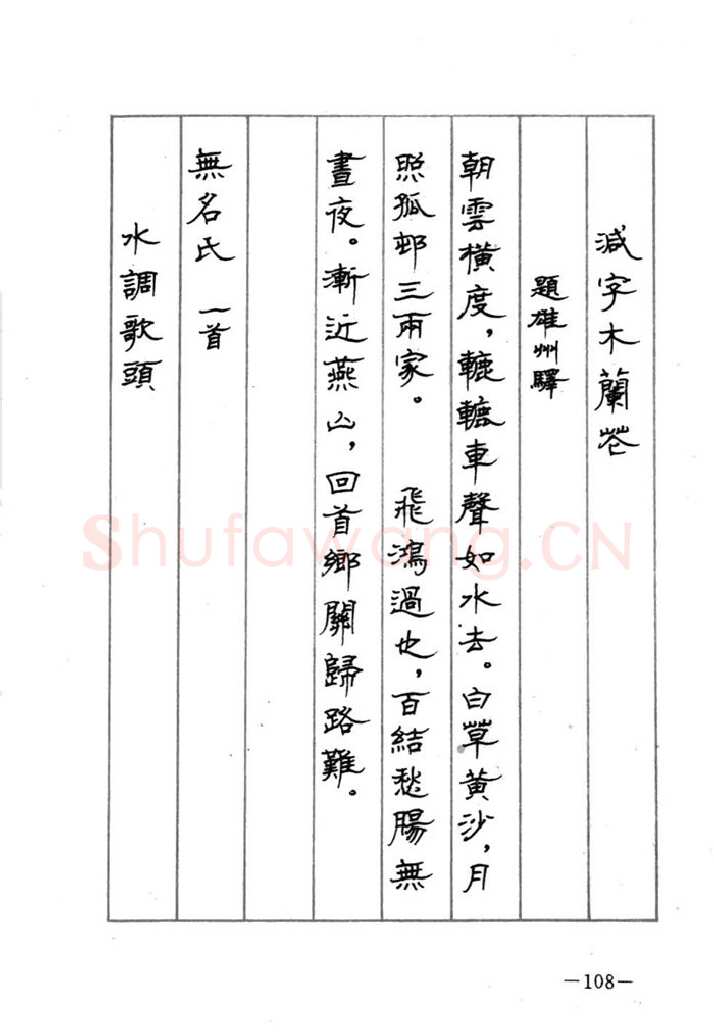 減字木蘭苍
題雄州驛
朝雲橫度，轆轆車聲如水去。白草黃沙，月
照孤邨三兩家。　飛鴻過也，百結愁腸無
晝夜。漸近燕山，回首鄉關歸路難。
無名氏　一首
水調歌頭
Shufawang.CN
—108—